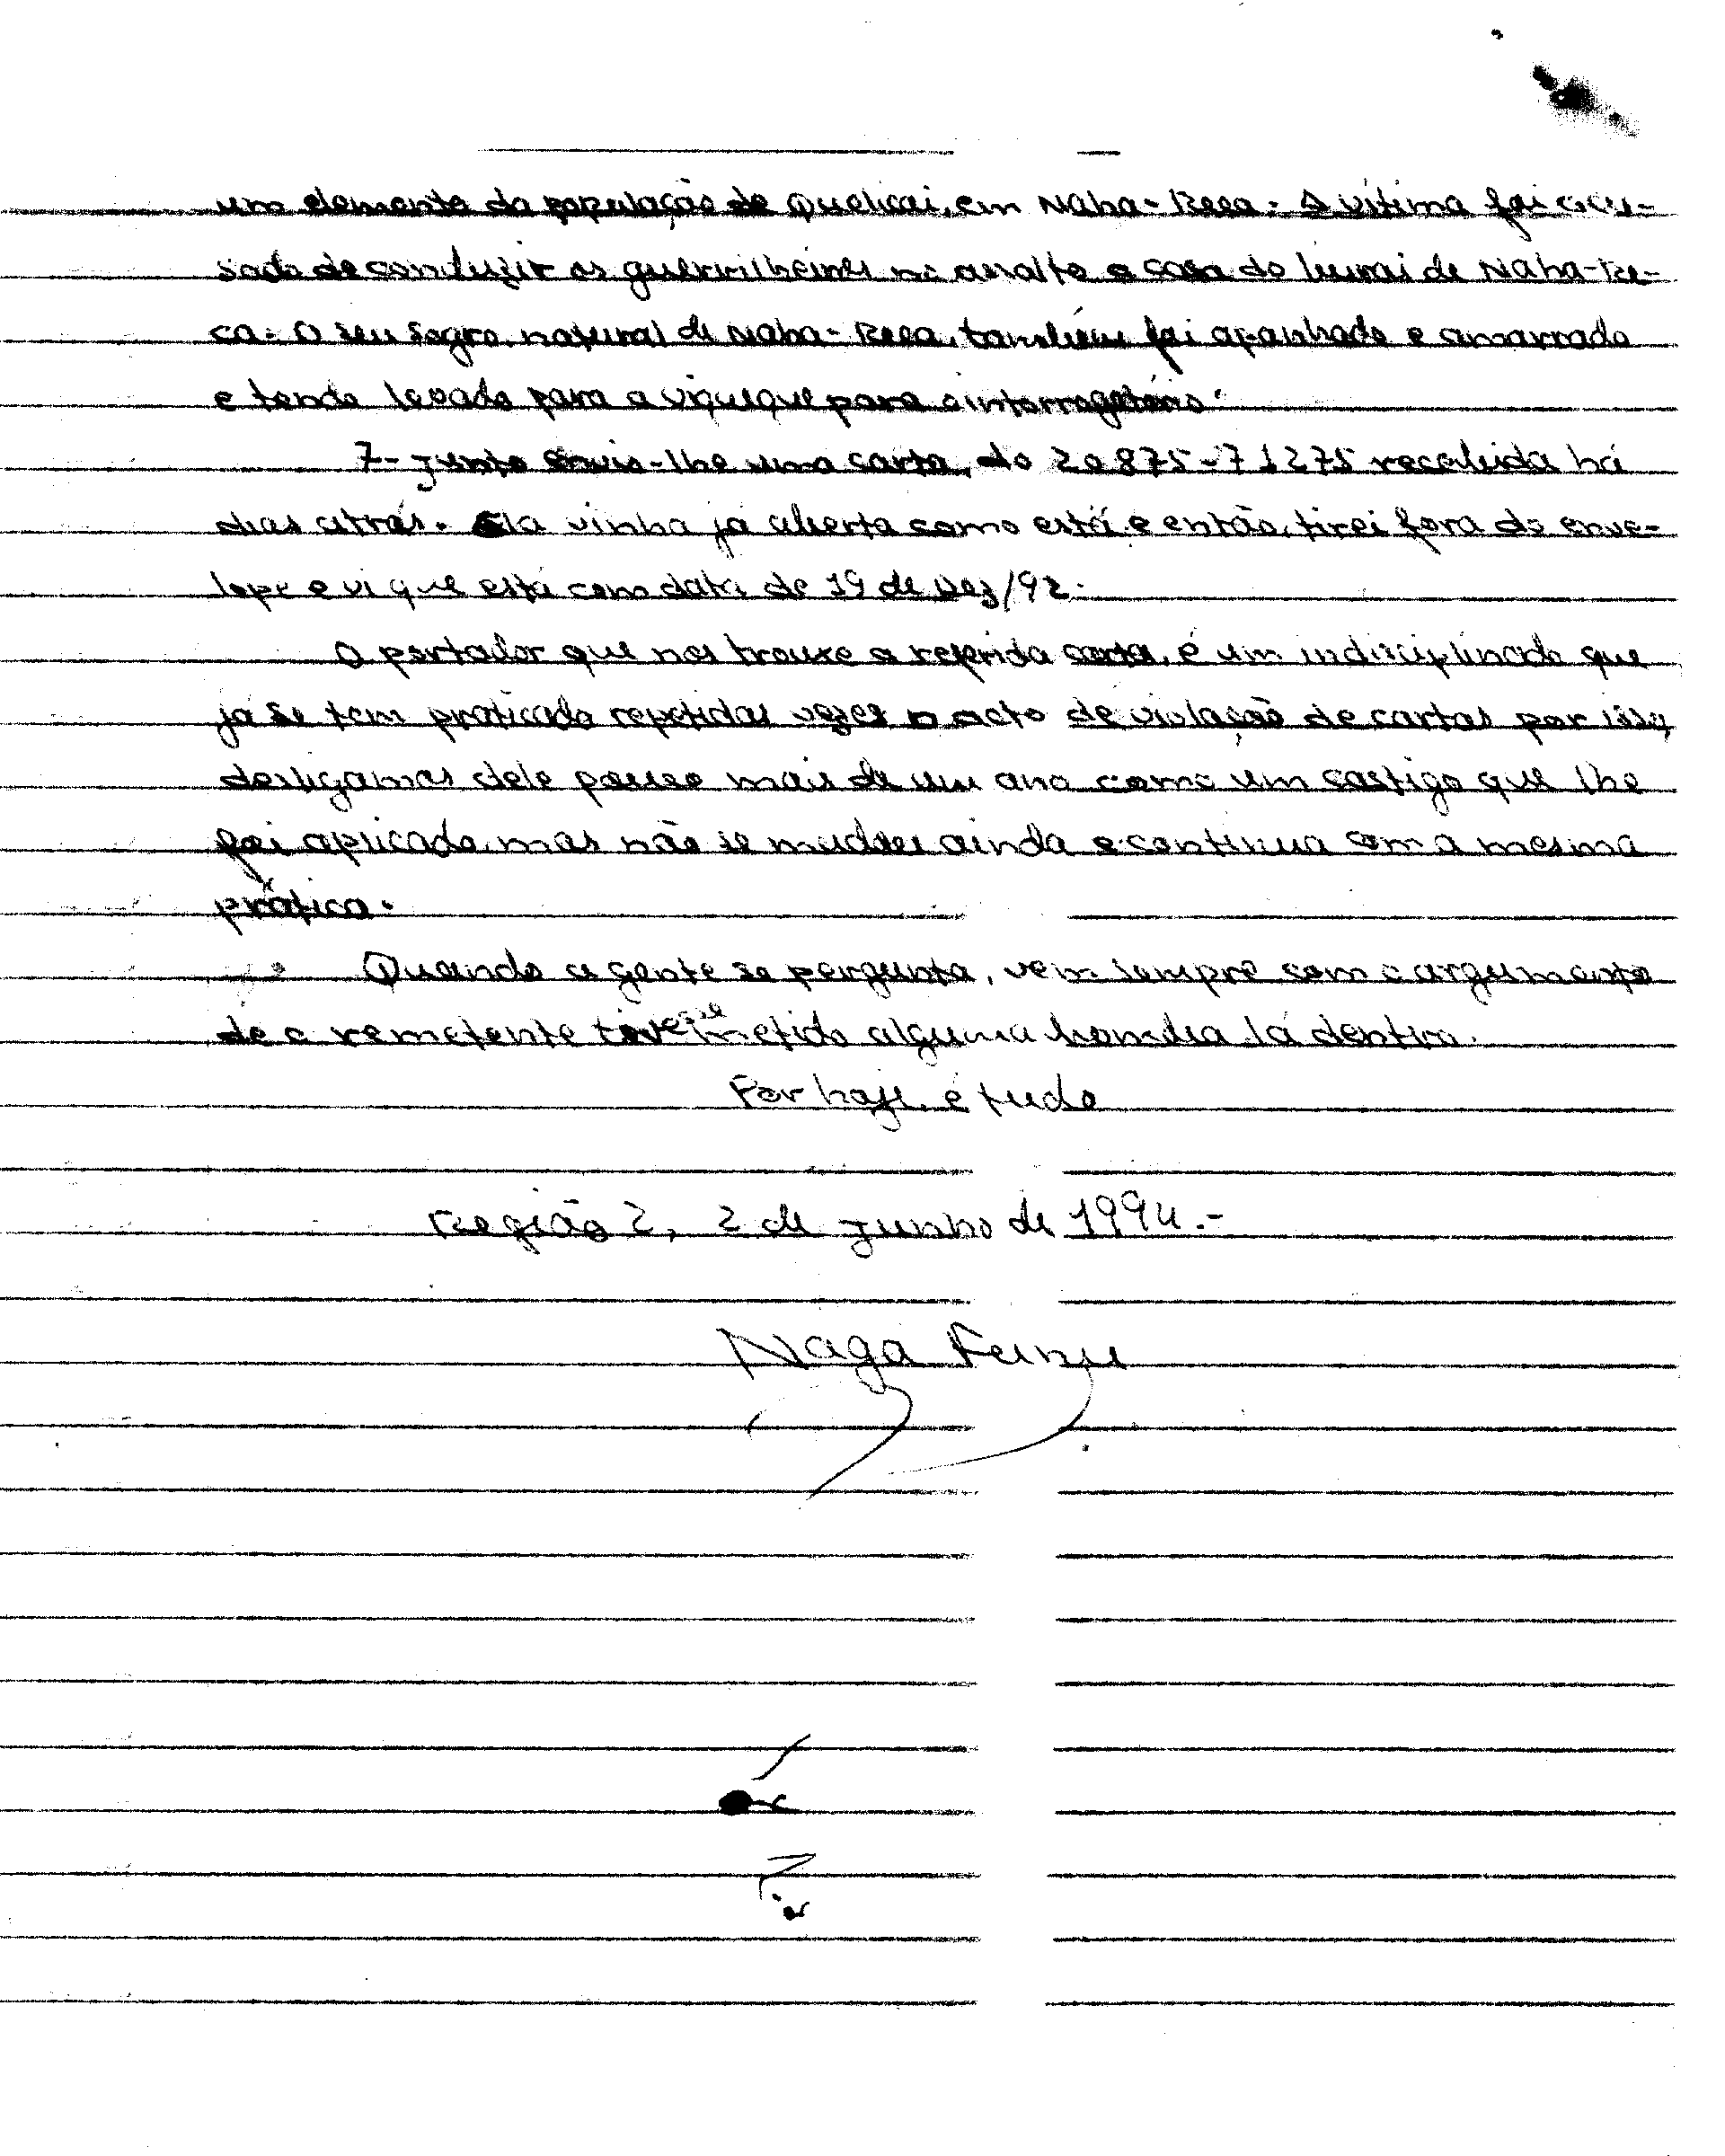 um elemento da população de Quelicai, em Naha-Reca. A vítima foi acu-
sada de conduzir os guerrilheiros no assalto a casa do liurai de Naha-Re-
ca. O seu sogro, natural de Naha-Reca, também foi apanhado e amarrado
e tendo levado para a Viqueque para o interrogatório.
7- Junto envio-lhe uma carta, do 20875-71275 recebida há
dias atrás. Ela vinha já aberta como está e então, tirei fora do enve-
lope e vi que está com data de 19 de Dez/92.
O portador que nos trouxe a referida carta, é um indisciplinado que
já se tem praticado repetidas vezes o acto de violação de cartas por isso,
desligamos dele pouco mais de um ano como um castigo que lhe
foi aplicado, mas não se mudou ainda e continua com a mesma
prática.
Quando a gente se pergunta, vem sempre com o argumento
de o remetente tivesse metido alguma bomba lá dentro.
Por hoje, é tudo
Região 2, 2 de Junho de 1994.-
Naga